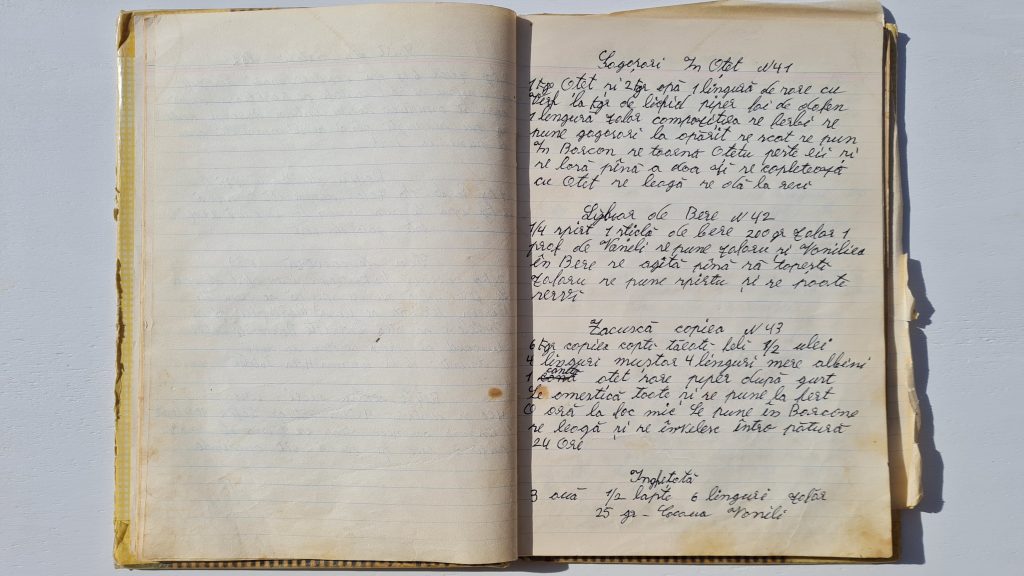 Gogoșari In Oțet N41
1 kgr Oțet și 2 kgr apă 1 lingură de sare cu
Vîrf la kgr de lichid piper foi de dafen
1 lengură zahar compozitiea se ferbi se
pune gogosari la opărit se scot se pun
In Borcon se toarnă Otetu peste eii și
se lasă pînă a doa zi se copletează
cu Otet se leagă se dă la reci
de Bere N42
1/4 spirt 1 sticlă de bere 200 gr zahar 1
praf de Vanili se pune zaharu și Vaniliea
în Bere se agită pînă să topești
zaharu se pune spirtu și se poate
servi
Zacuscă copiea N43
6 kgr copiea copti tăeati feli 1/2 ulei
4 linguri muștar 4 linguri mere albini
1 cană otet sare piper după gust
Se amestică toate și se pune la fert
O oră la foc mic Se pune în Borcone
se leagă și se învelesc întro pătură
24 Ore
Inghetată
3 ouă 1/2 lapte 6 linguri zahăr
25 gr - Cacaua Vanili